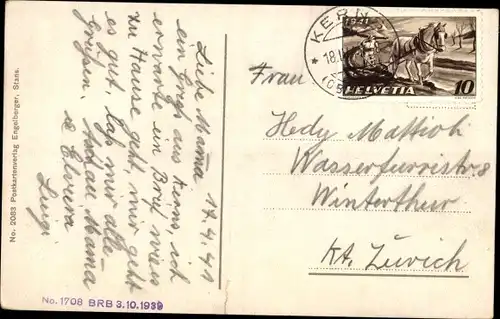 No. 2083 Postkartenverlag Engelberger, Stans.
Liebe Mama 17.4.41
ein Gruss aus Kerns, ich
erwarte ein Brief wies
zu Hause geht, mir geht
es gut, lass mir alle
grüssen. Mama
Elvira
Luigi
No. 1708 BRB 3.10.1939
KERNS
18.
1941
HELVETIA 10
Frau
Hedy Mattioli
Wasserfurristr 8
Winterthur
Kt. Zürich